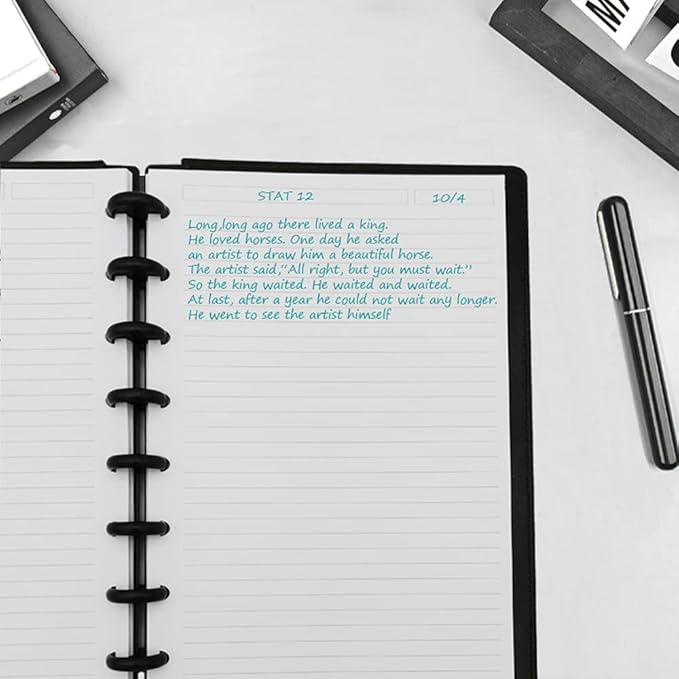 MA
STAT 12
10/4
Long,long ago there lived a king.
He loved horses. One day he asked
an artist to draw him a beautiful horse.
The artist said,“All right, but you must wait.”
So the king waited. He waited and waited.
At last, after a year he could not wait any longer.
He went to see the artist himself